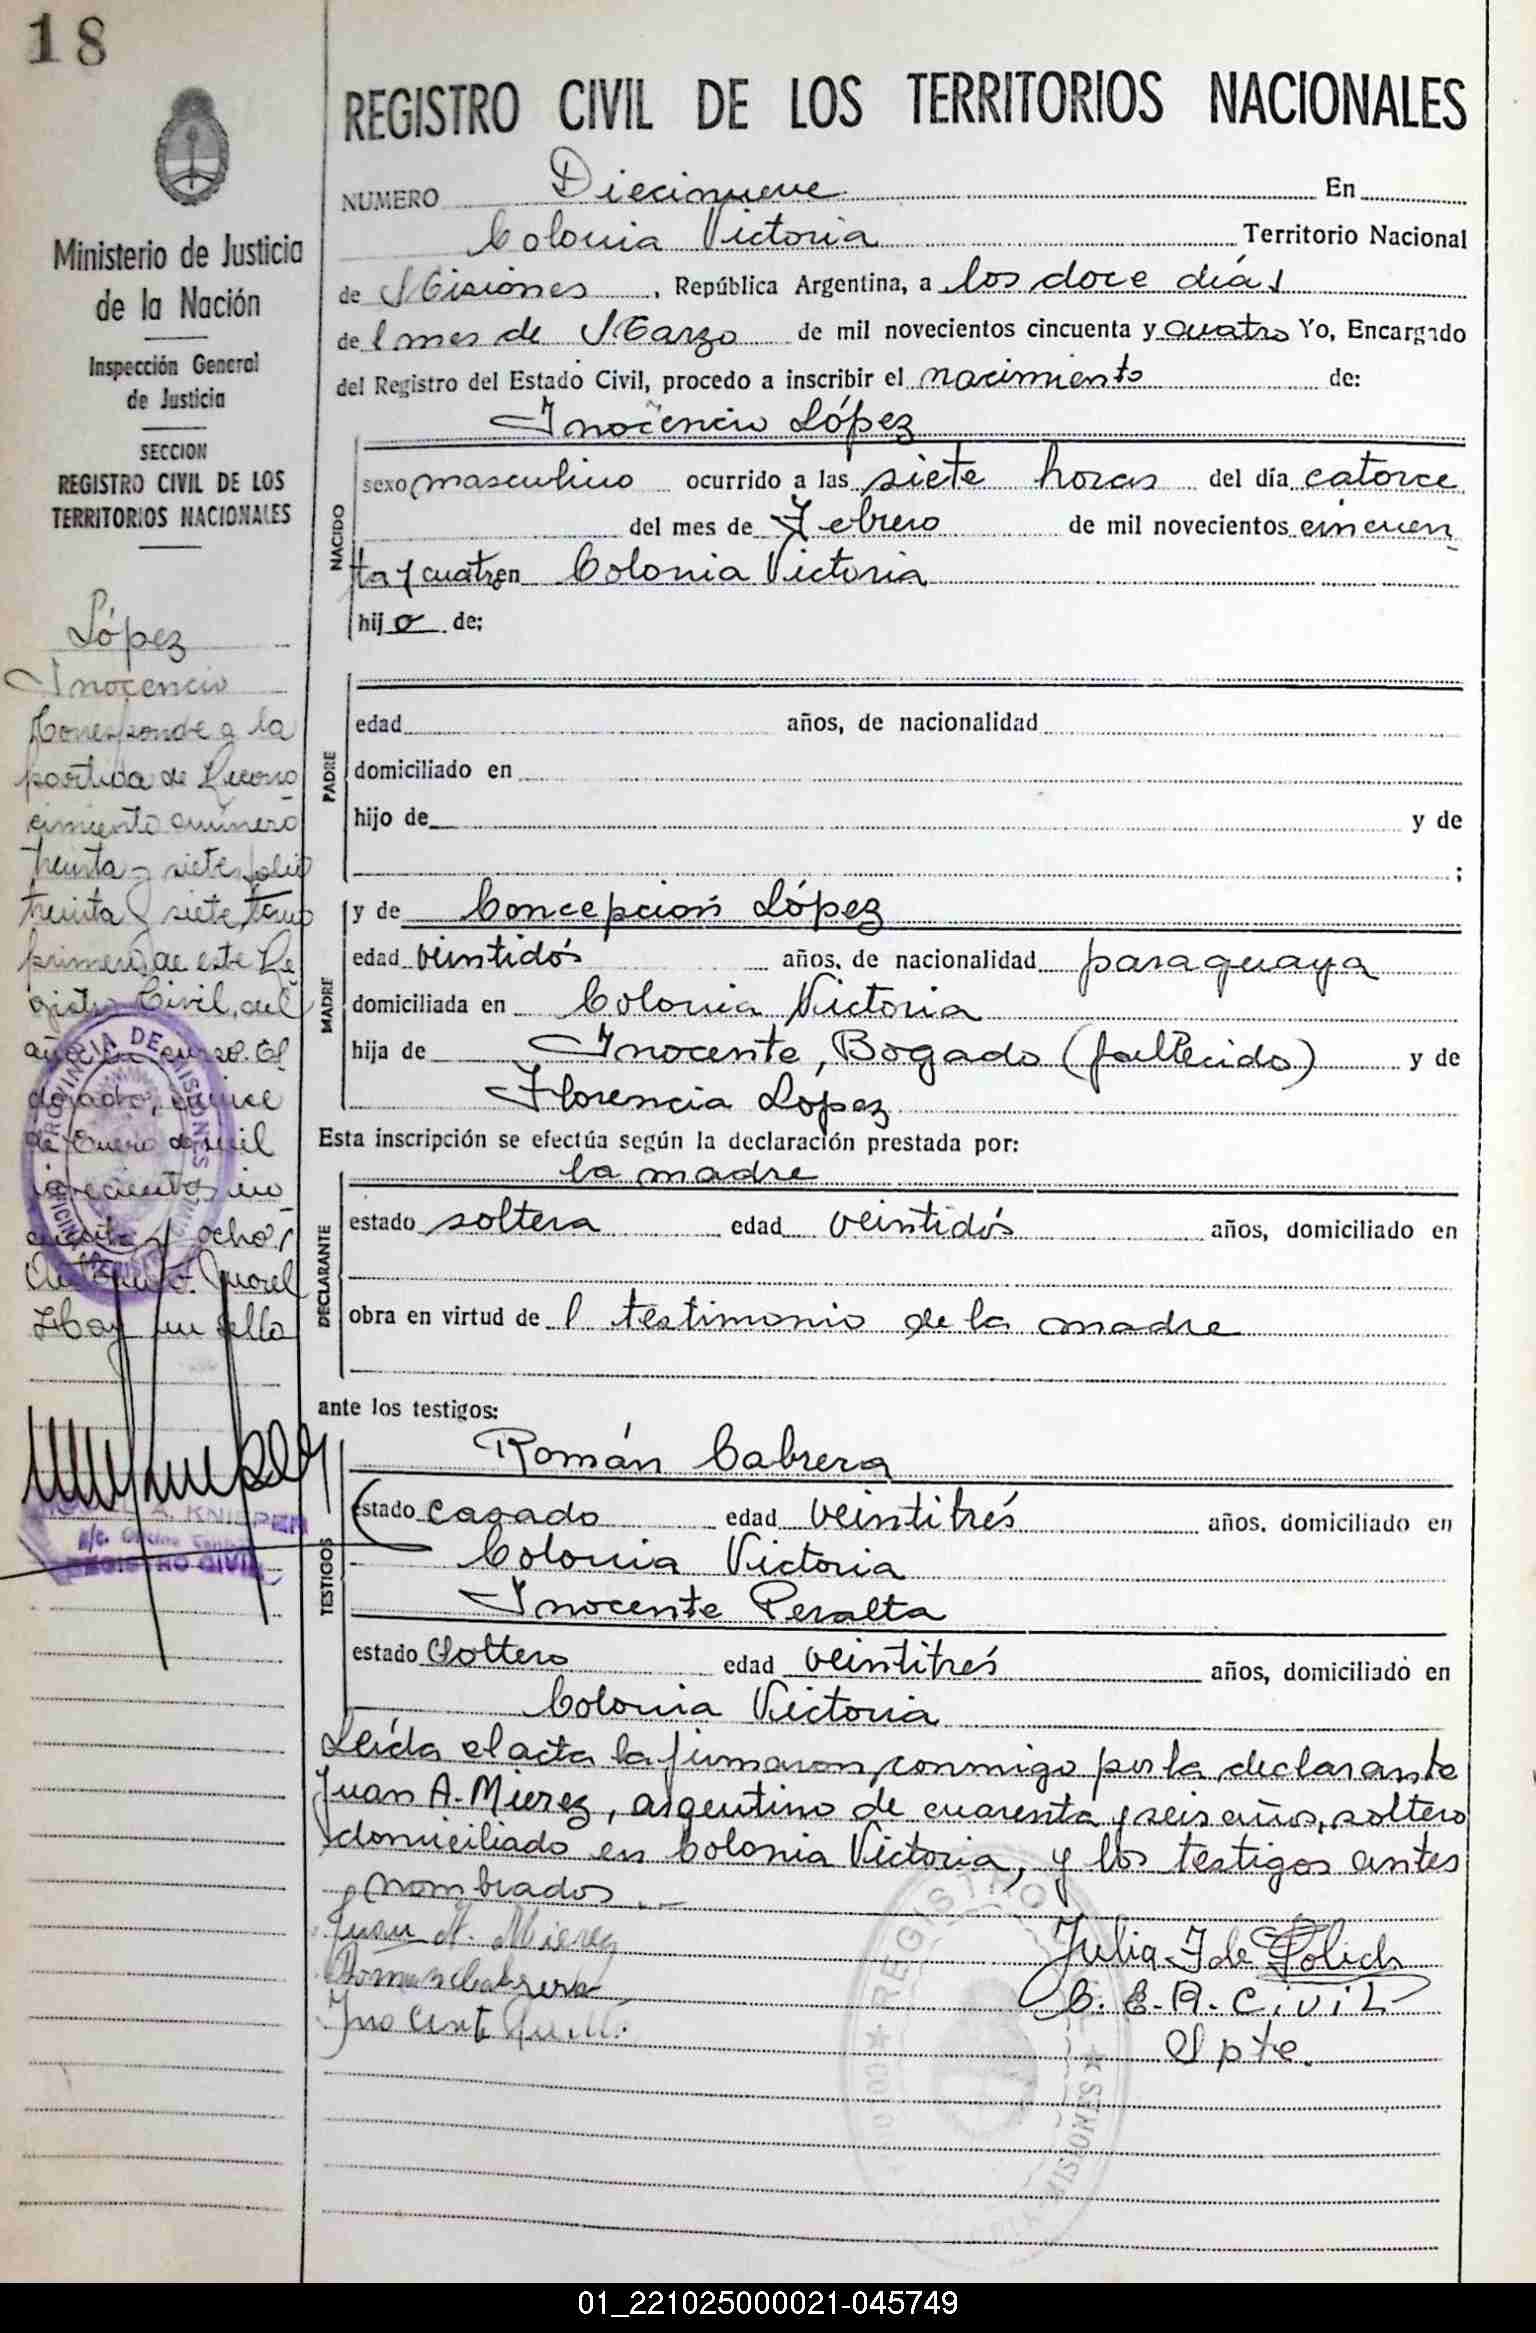 18
REGISTRO CIVIL DE LOS TERRITORIOS NACIONALES
NUMERO Diecinueve En
Colonia Victoria Territorio Nacional
de Misiones, República Argentina, a los doce días
del mes de Marzo de mil novecientos cincuenta y cuatro Yo, Encargado
del Registro del Estado Civil, procedo a inscribir el nacimiento de:
Inocencio López
NACIDO
sexo masculino ocurrido a las siete horas del día catorce
del mes de Febrero de mil novecientos cincuen
ta y cuatro en Colonia Victoria
hijo de;
PADRE
edad años, de nacionalidad
domiciliado en
hijo de y de
;
MADRE
y de Concepción López
edad veintidós años, de nacionalidad paraguaya
domiciliada en Colonia Victoria
hija de Inocente, Bogado (fallecido) y de
Florencia López
Esta inscripción se efectúa según la declaración prestada por:
la madre
DECLARANTE
estado soltera edad veintidós años, domiciliado en
obra en virtud del testimonio de la madre
ante los testigos:
TESTIGOS
Román Cabrera
estado casado edad veintitrés años, domiciliado en
Colonia Victoria
Inocente Peralta
estado Soltero edad veintitrés años, domiciliado en
Colonia Victoria
Leída el acta la firmaron, conmigo por la declarante
Juan A. Mierez, argentino de cuarenta y seis años, soltero
domiciliado en Colonia Victoria, y los testigos antes
nombrados.
Juan A. Mierez
Roman Cabrera
Inocente
Julia I de
C. E. R. Civil
Spte.
REGISTRO
MISIONES
Ministerio de Justicia
de la Nación
Inspección General
de Justicia
SECCION
REGISTRO CIVIL DE LOS
TERRITORIOS NACIONALES
López
Inocencio
Corresponde a la
partida de Recono
cimiento número
treinta y siete, folio
treinta y siete, tomo
primero, de este Re
gistro Civil, del
año en curso. El
dorado, quince
de Enero de mil
novecientos cin
cuenta y ocho.
Morel
Hay un sello
PROVINCIA DE MISIONES
A. KNIEPER
a/c. Oficina Central
REGISTRO CIVIL
01_221025000021-045749